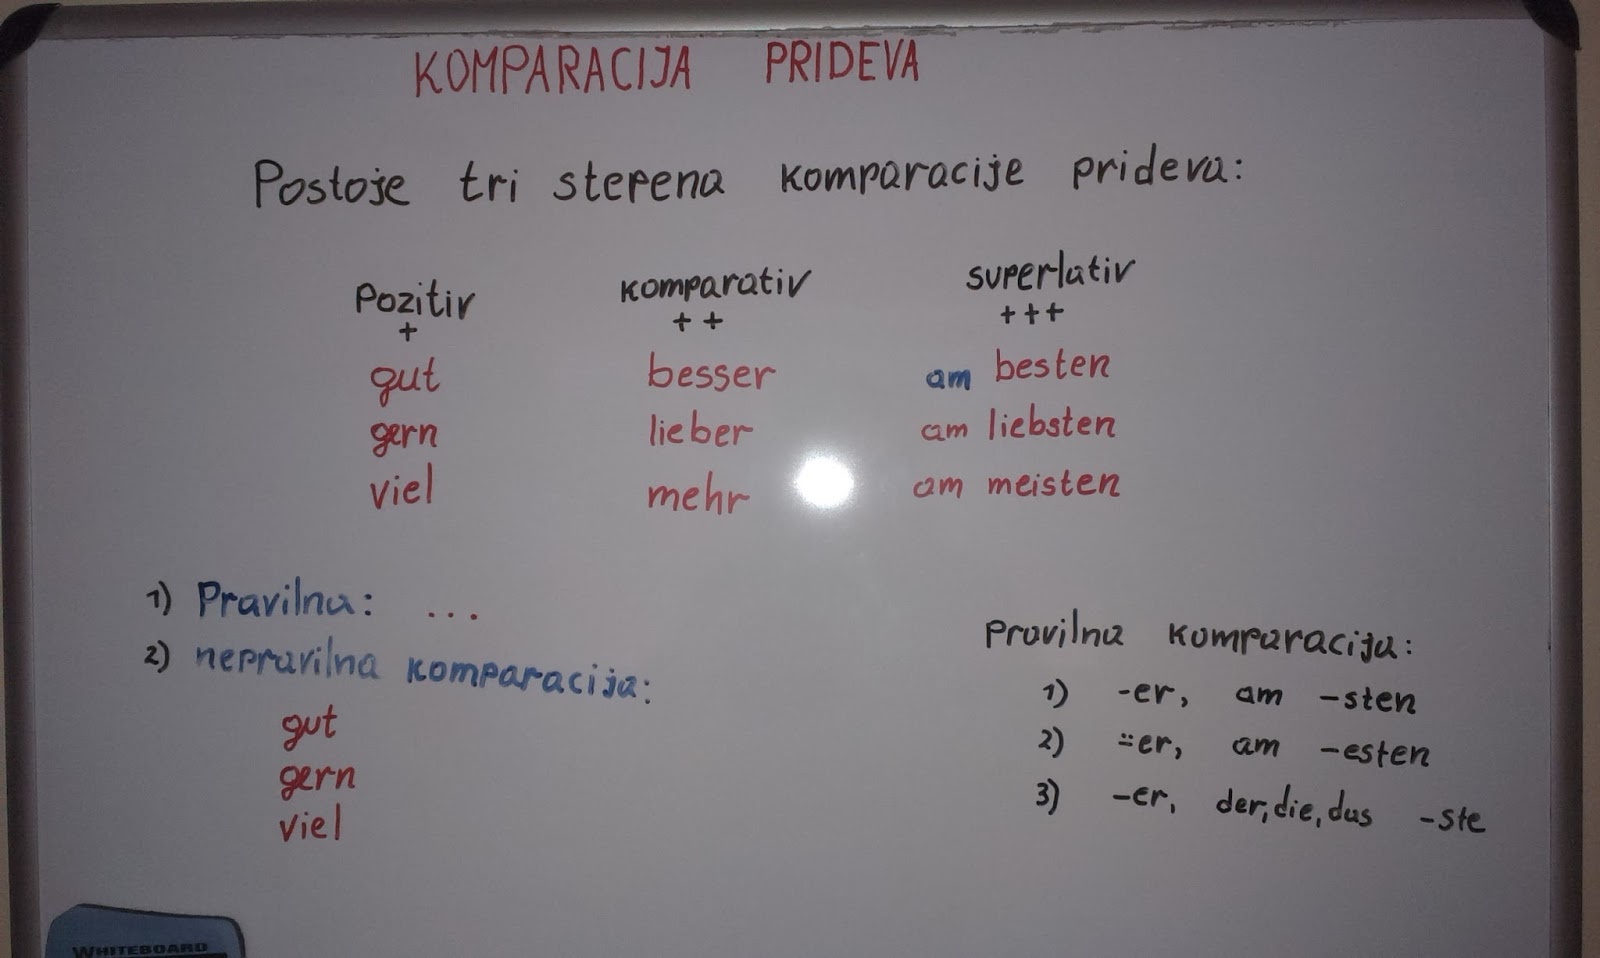 KOMPARACIJA PRIDEVA
Postoje tri stepena komparacije prideva:
Pozitiv komparativ superlativ
+ ++ +++
gut besser am besten
gern lieber am liebsten
viel mehr am meisten
1) Pravilna: ...
2) nepravilna komparacija:
gut
gern
viel
Pravilna komparacija:
1) -er, am -sten
2) ⸚er, am -esten
3) -er, der, die, das -ste
WHITEBOARD